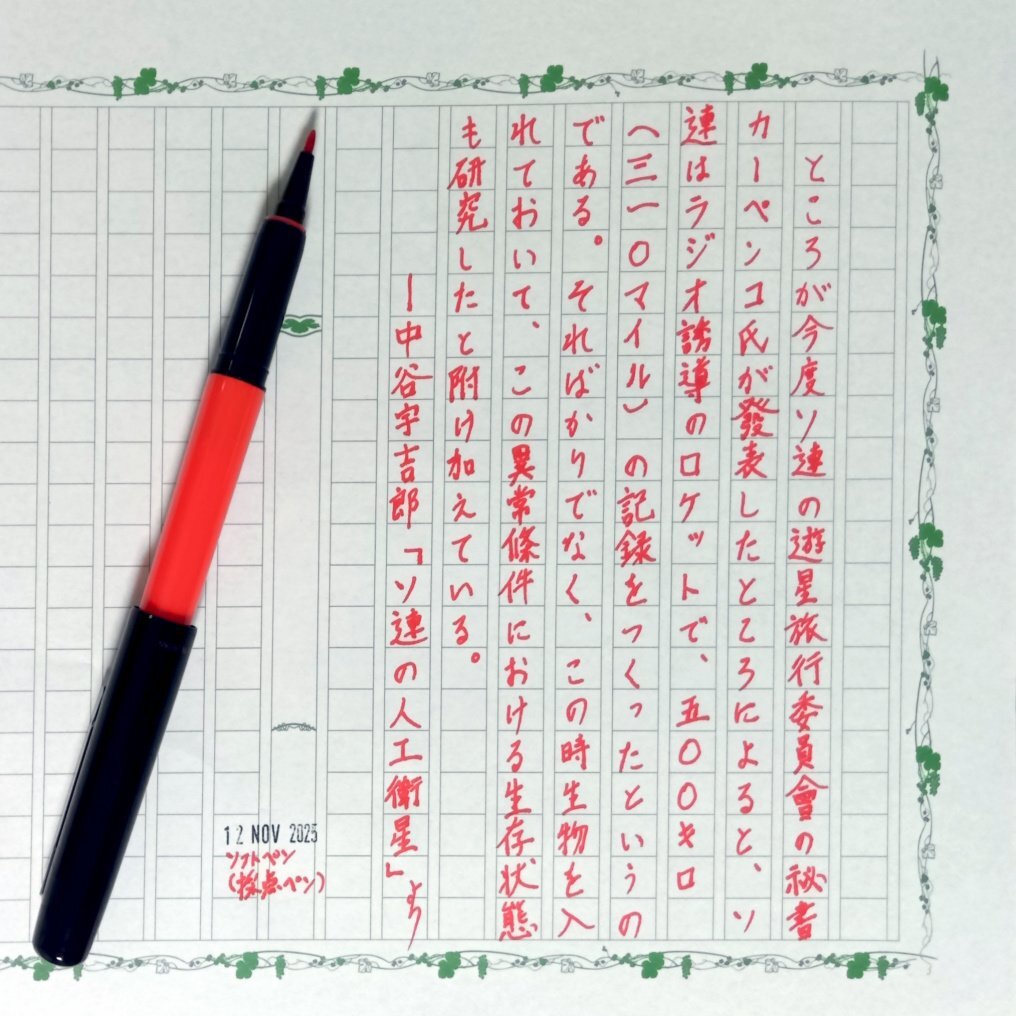 ところが今度ソ連の遊星旅行委員會の秘書
カーペンコ氏が發表したところによると、ソ
連はラジオ誘導のロケットで、五〇〇キロ
(三一〇マイル)の記録をつくったというの
である。そればかりでなく、この時生物を入
れておいて、この異常條件における生存状態
も研究したと附け加えている。
ー中谷宇吉郎「ソ連の人工衛星」より
12 NOV 2025
ソフトペン
(採点ペン)